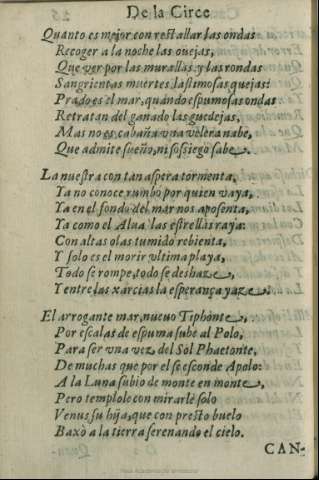 De la Circe
Quanto es mejor con restallar las ondas
Recoger a la noche las ouejas,
Que ver por las murallas, y las rondas
Sangrientas muertes, lastimosas quejas:
Prado es el mar, quando espumosas ondas
Retratan del ganado las guedejas,
Mas no es cabaña vna velera naue,
Que admite sueño, ni sossiego sabe.
La nuestra con tan aspera tormenta,
Ya no conoce rumbo por quien vaya,
Ya en el fondo del mar nos aposenta,
Ya como el Alua las estrellas raya:
Con altas olas tumido rebienta,
Y solo es el morir vltima playa,
Todo se rompe, todo se deshaze,
Y entre las xarcias la esperança yaze.
El arrogante mar, nueuo Tiphonte,
Por escalas de espuma sube al Polo,
Para ser vna vez, del Sol Phaetonte,
De muchas que por el se esconde Apolo:
A la Luna subio de monte en monte,
Pero templole con mirarle solo
Venus su hija, que con presto buelo
Baxò a la tierra serenando el cielo.
CAN-